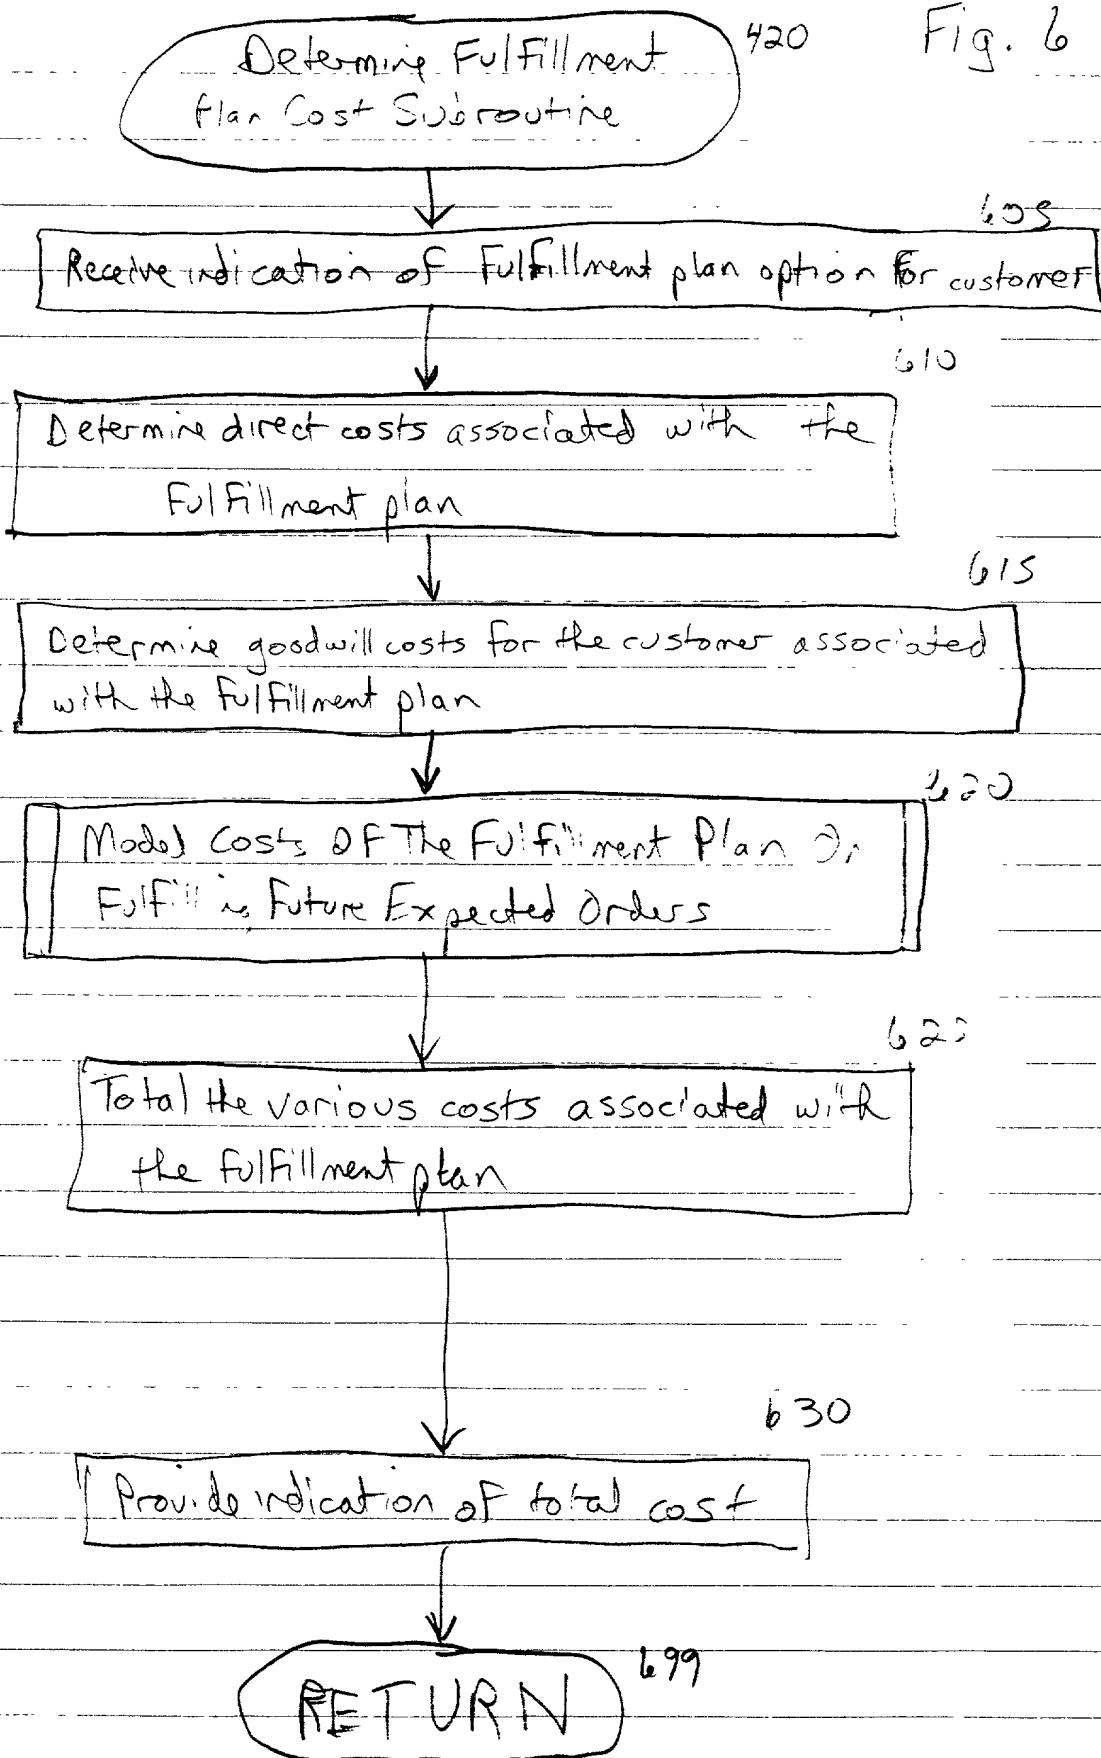 Fig. 6
420
Determine Fulfillment
Plan Cost Subroutine
605
Receive indication of Fulfillment plan option for customer
610
Determine direct costs associated with the
Fulfillment plan
615
Determine goodwill costs for the customer associated
with the fulfillment plan
620
Model Costs Of The Fulfillment Plan On
Future Expected Orders
Total the various costs associated with
the fulfillment plan
630
Provide indication of total cost
RETURN
699